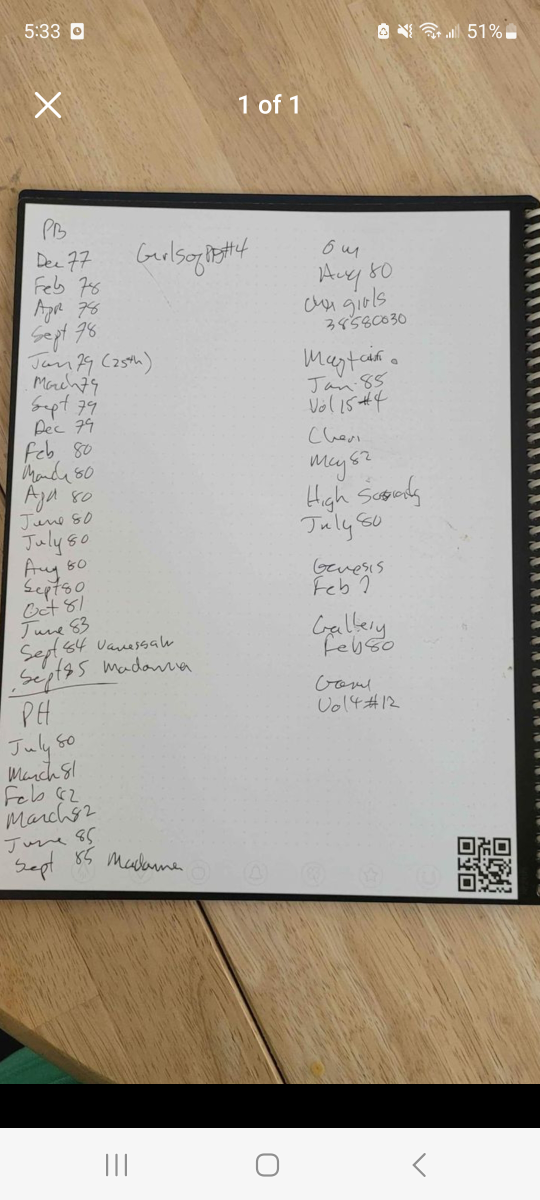 5:33
51%
1 of 1
PB
Dec 77
Feb 78
Apr 78
Sept 78
Jan 79 (25th)
March 79
Sept 79
Dec 79
Feb 80
March 80
Apr 80
June 80
July 80
Aug 80
Sept 80
Oct 81
June 83
Sept 84 Vanessa W
Sept 85 Madonna
PH
July 80
March 81
Feb 82
March 82
June 85
Sept 85 Madonna
Girls of PB #4
Oui
Aug 80
girls
38580030
Mayfair
Jan 85
Vol 15 #4
Cheri
May 82
High Society
July 80
Genesis
Feb ?
Gallery
Feb 80
Game
Vol 4 #12